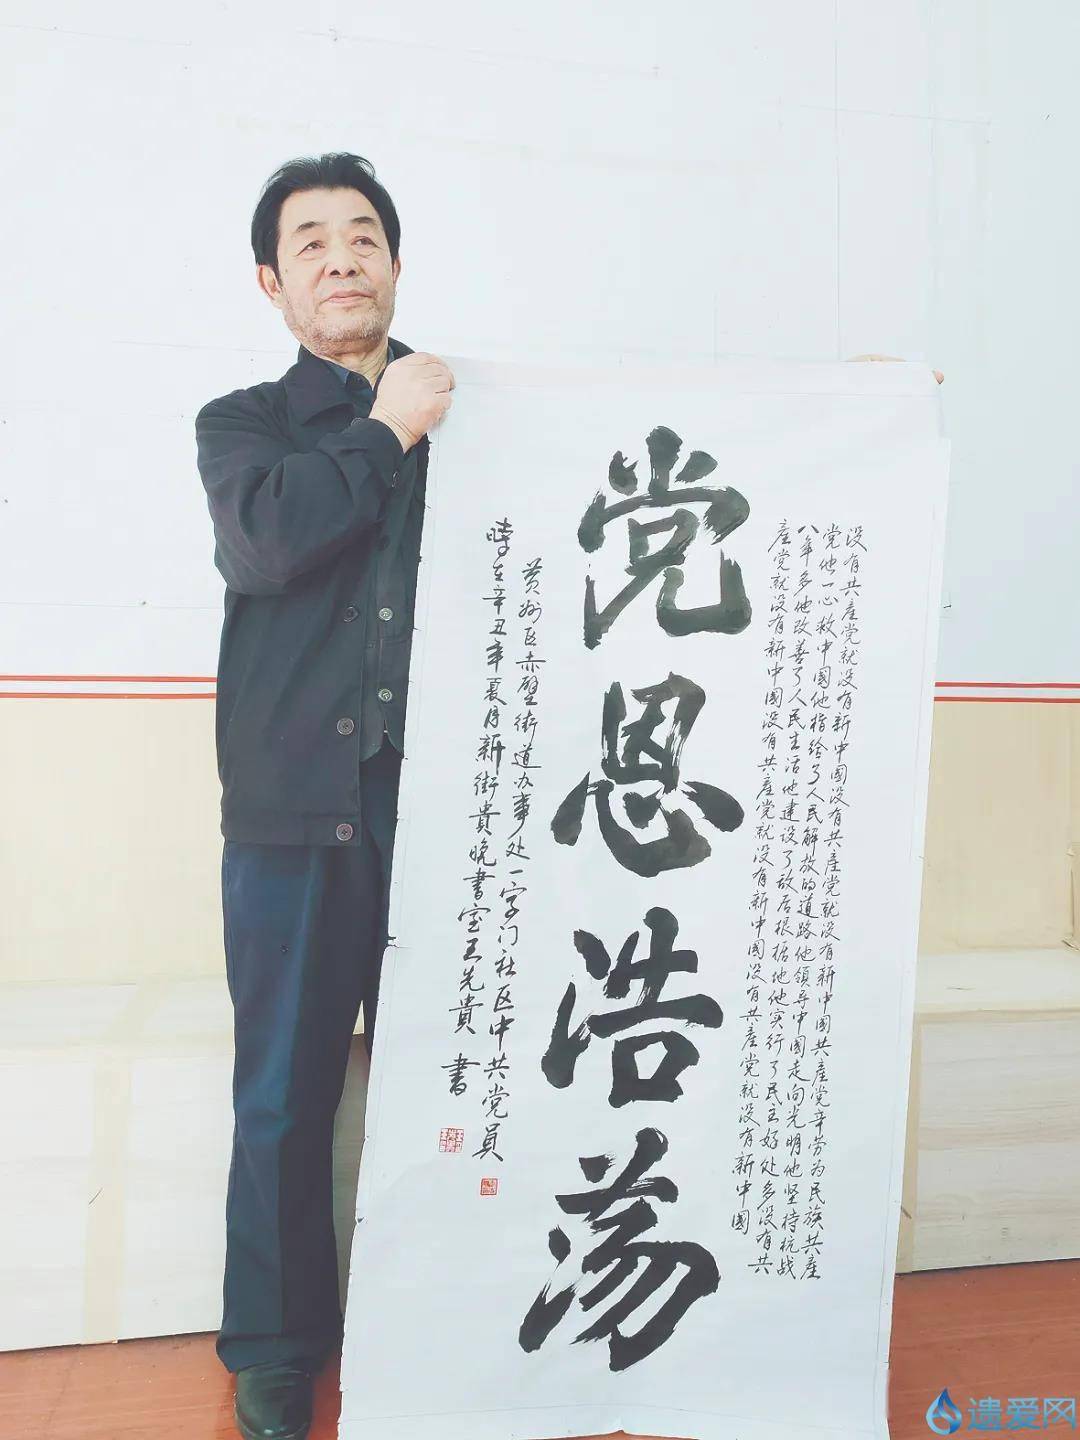 没有共產党就没有新中國没有共產党就没有新中國共產党辛劳为民族共產
党他一心救中國他指给了人民解放的道路他領导中國走向光明他坚持抗战
八年多他改善了人民生活他建设了敌后根据地他实行了民主好处多没有共
產党就没有新中國没有共產党就没有新中國没有共產党就没有新中國
党恩浩荡
黄州区赤壁街道办事处一字门社区中共党員
時在辛丑年夏月新街貴晚書室王先貴 書
遗爱网